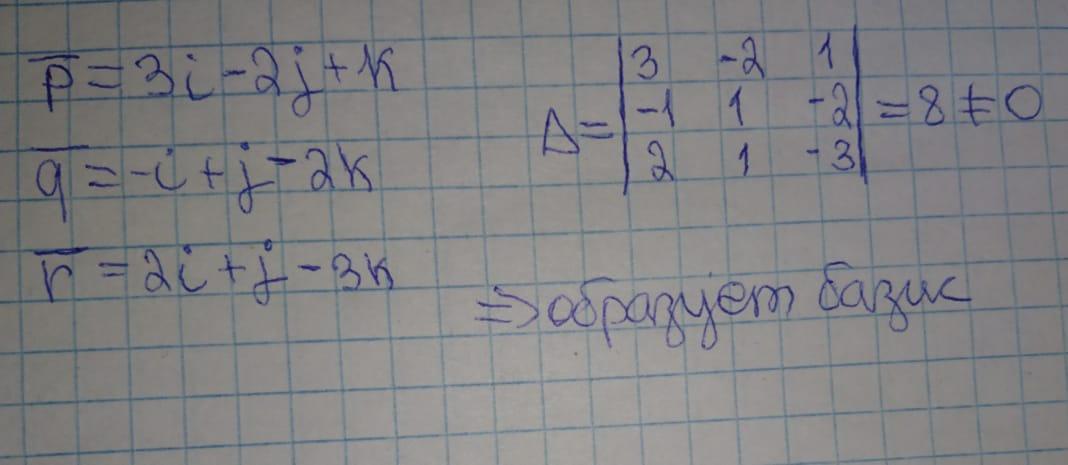 p̅ = 3i - 2j + k
q̅ = -i + j - 2k
r̅ = 2i + j - 3k
Δ = | 3 -2 1 |
| -1 1 -2 | = 8 ≠ 0
| 2 1 -3 |
=> образует базис